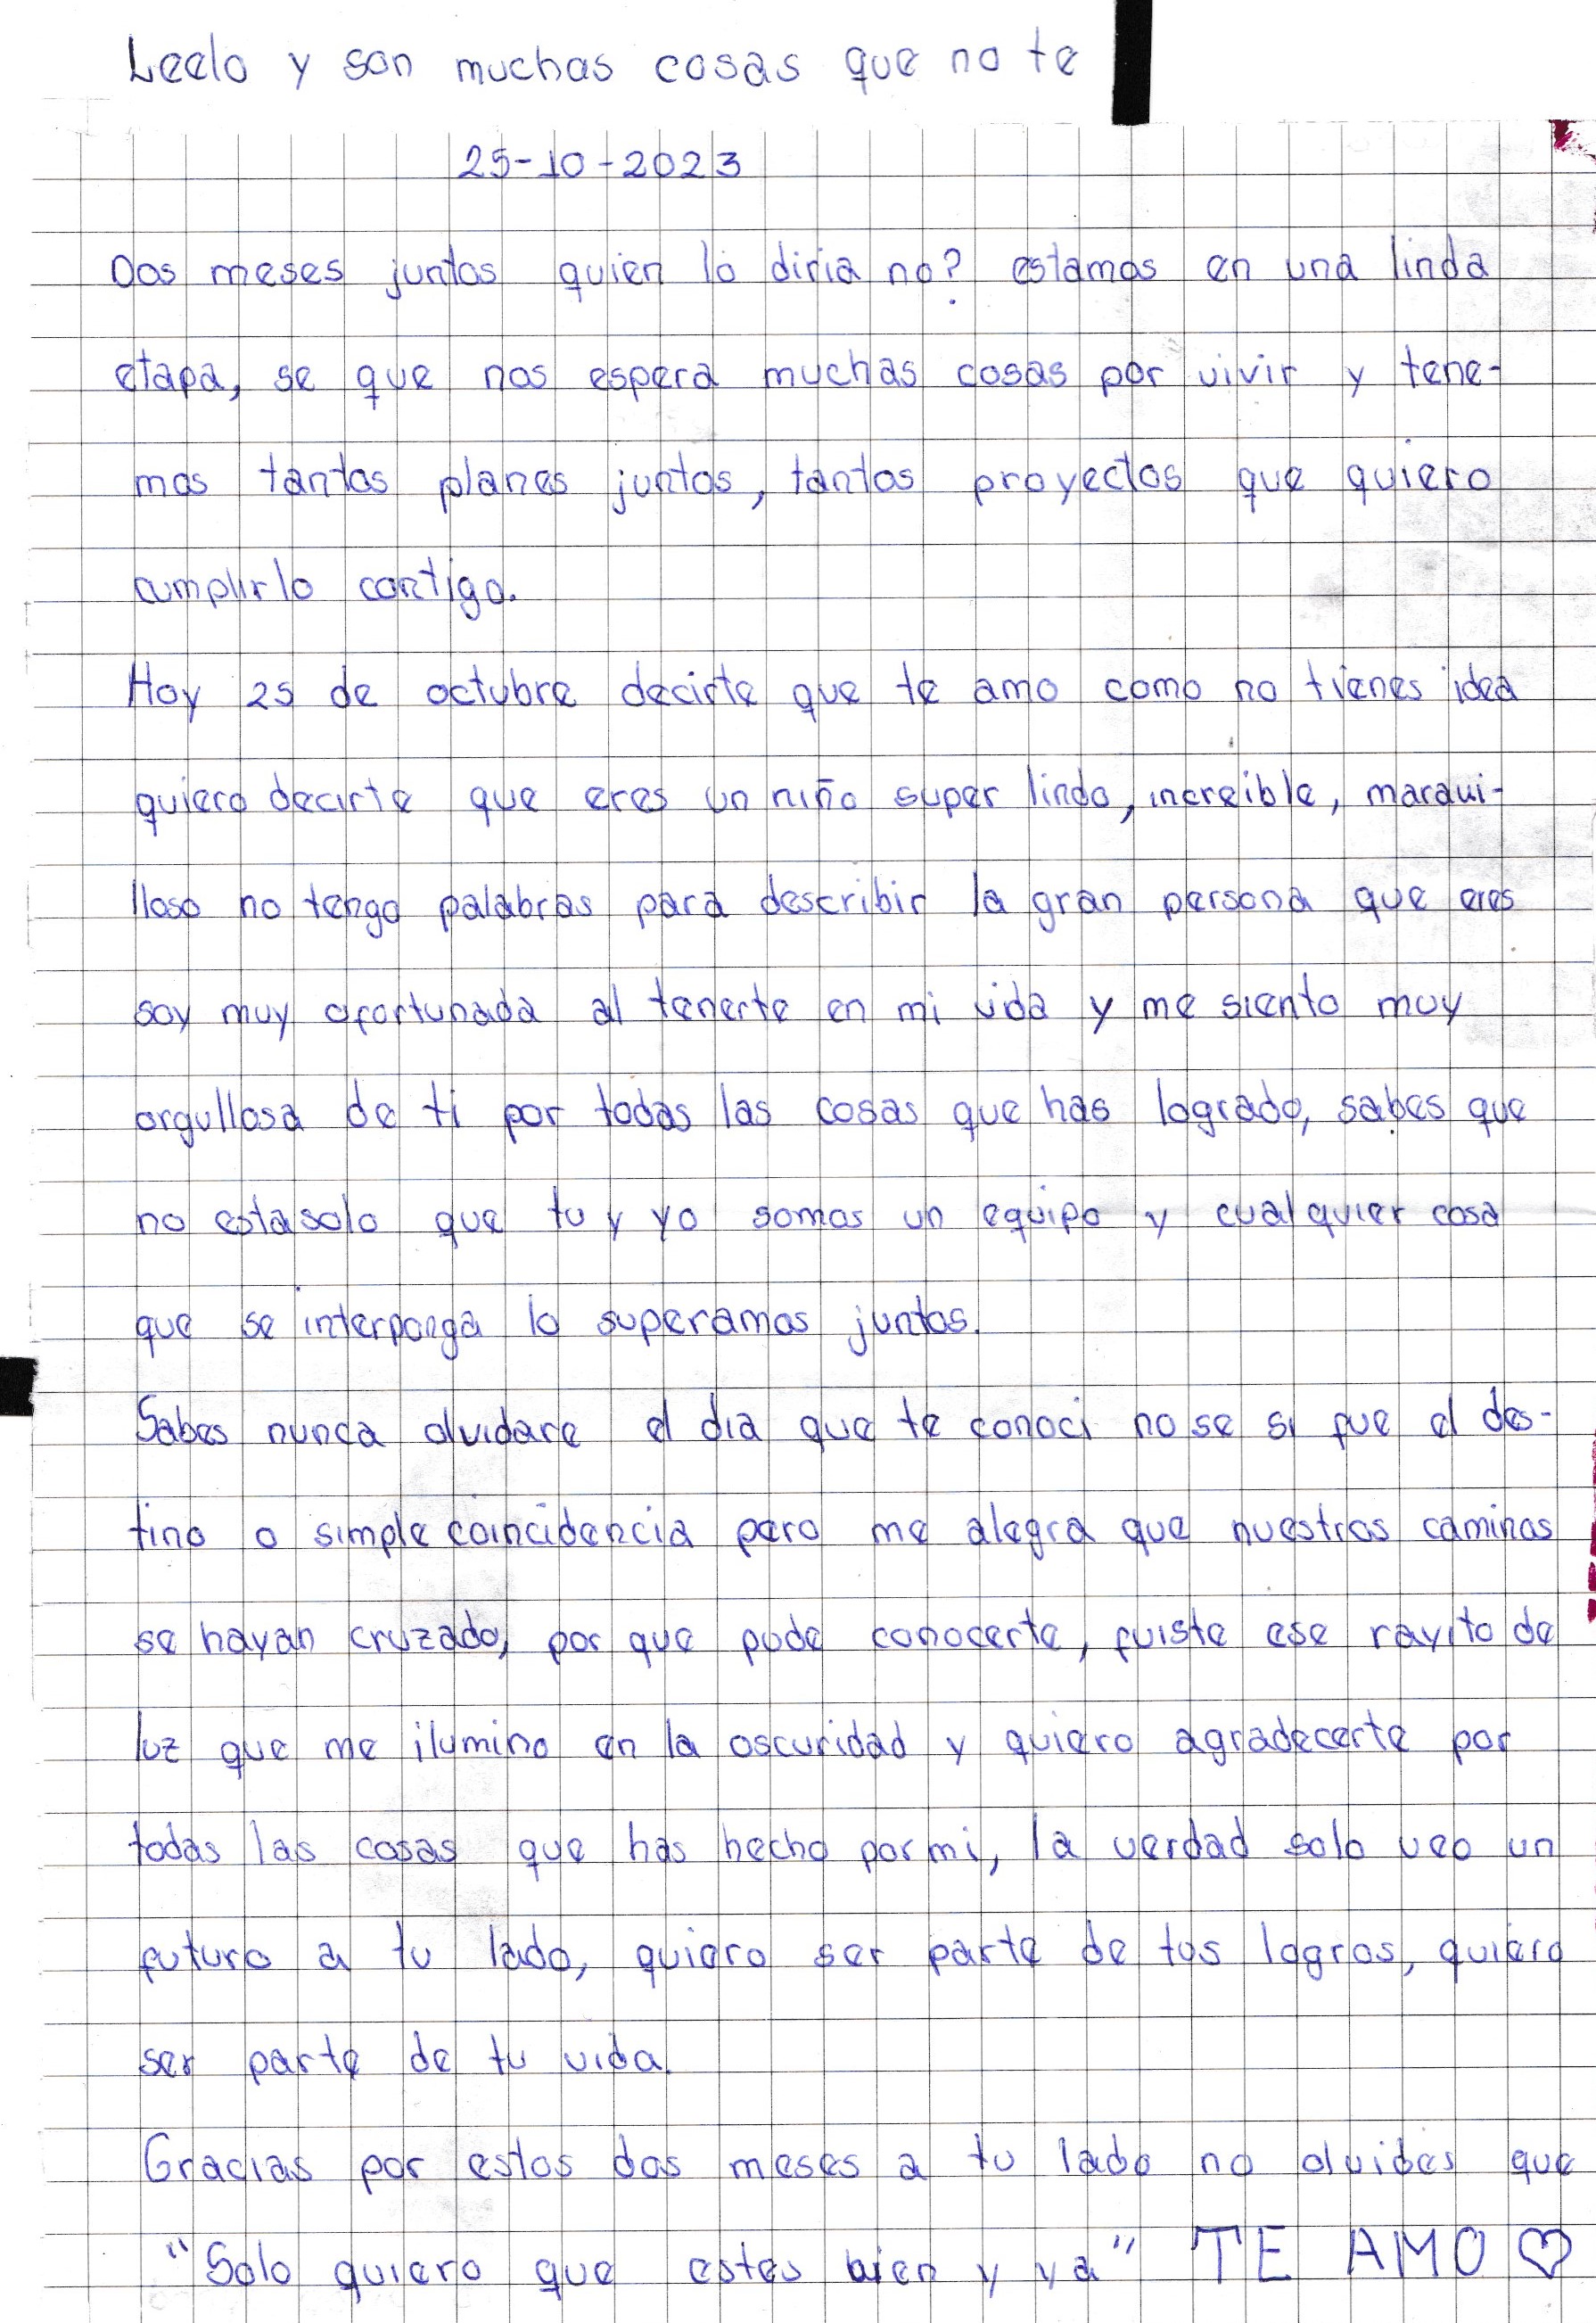 Leelo y son muchas cosas que no te
25-10-2023
Dos meses juntos quien lo diria no? estamos en una linda
etapa, se que nos espera muchas cosas por vivir y tene-
mos tantos planes juntos, tantos proyectos que quiero
cumplirlo contigo.
Hoy 25 de octubre decirte que te amo como no tienes idea
quiero decirte que eres un niño super lindo, increible, maravi-
lloso no tengo palabras para describir la gran persona que eres
soy muy afortunada al tenerte en mi vida y me siento muy
orgullosa de ti por todas las cosas que has logrado, sabes que
no esta solo que tu y yo somos un equipo y cualquier cosa
que se interponga lo superamos juntos.
Sabes nunca olvidare el dia que te conoci no se si fue el des-
tino o simple coincidencia pero me alegra que nuestros caminos
se hayan cruzado, por que pude conocerte, fuiste ese rayito de
luz que me ilumino en la oscuridad y quiero agradecerte por
todas las cosas que has hecho por mi, la verdad solo veo un
futuro a tu lado, quiero ser parte de tus logros, quiero
ser parte de tu vida.
Gracias por estos dos meses a tu lado no olvides que
"Solo quiero que estes bien y ya" TE AMO ♡